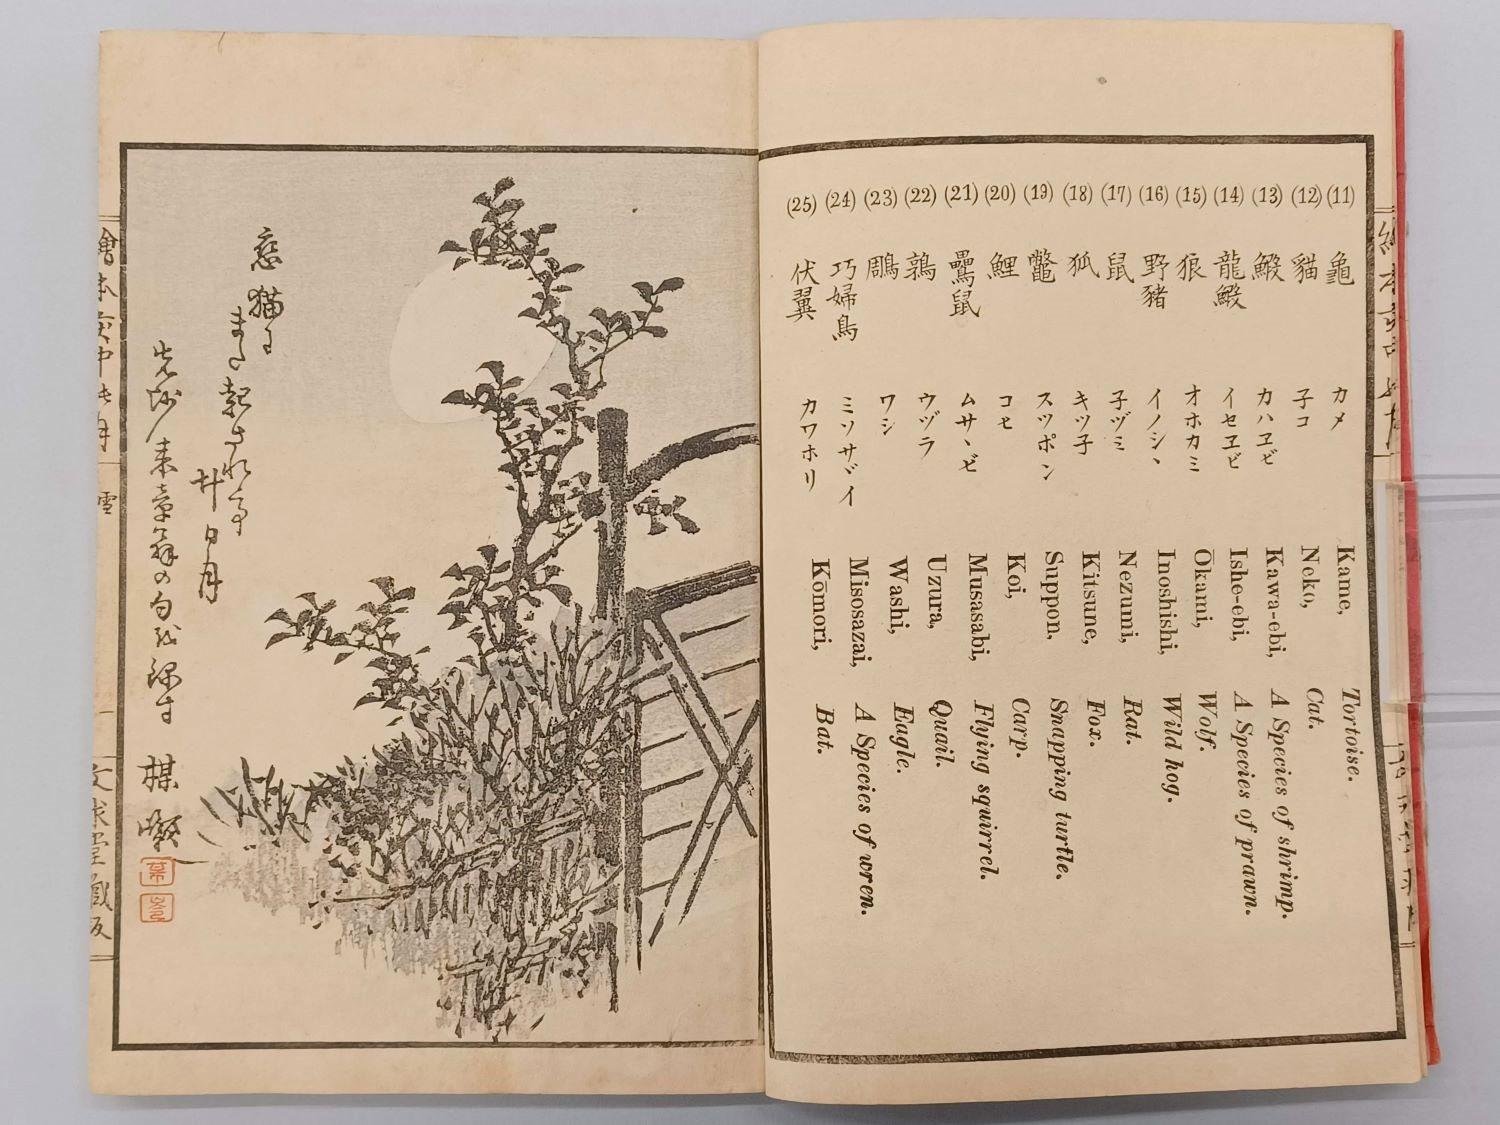 (11) 龜 カメ Kame, Tortoise.
(12) 貓 子コ Neko, Cat.
(13) 鰕 カハヱビ Kawa-ebi, A Species of shrimp.
(14) 龍鰕 イセヱビ Ishe-ebi, A Species of prawn.
(15) 狼 オホカミ Ōkami, Wolf.
(16) 野豬 イノシヽ Inoshishi, Wild hog.
(17) 鼠 子ヅミ Nezumi, Rat.
(18) 狐 キツ子 Kitsune, Fox.
(19) 鼈 スツポン Suppon, Snapping turtle.
(20) 鯉 コヒ Koi, Carp.
(21) 鸓鼠 ムサヽビ Musasabi, Flying squirrel.
(22) 鶉 ウヅラ Uzura, Quail.
(23) 鵰 ワシ Washi, Eagle.
(24) 巧婦鳥 ミソサヾイ Misosazai, A Species of wren.
(25) 伏翼 カワホリ Kōmori, Bat.
戀猫に
また起されて
廿日月
来章翁の句
繪本
月
雪
文求堂藏版